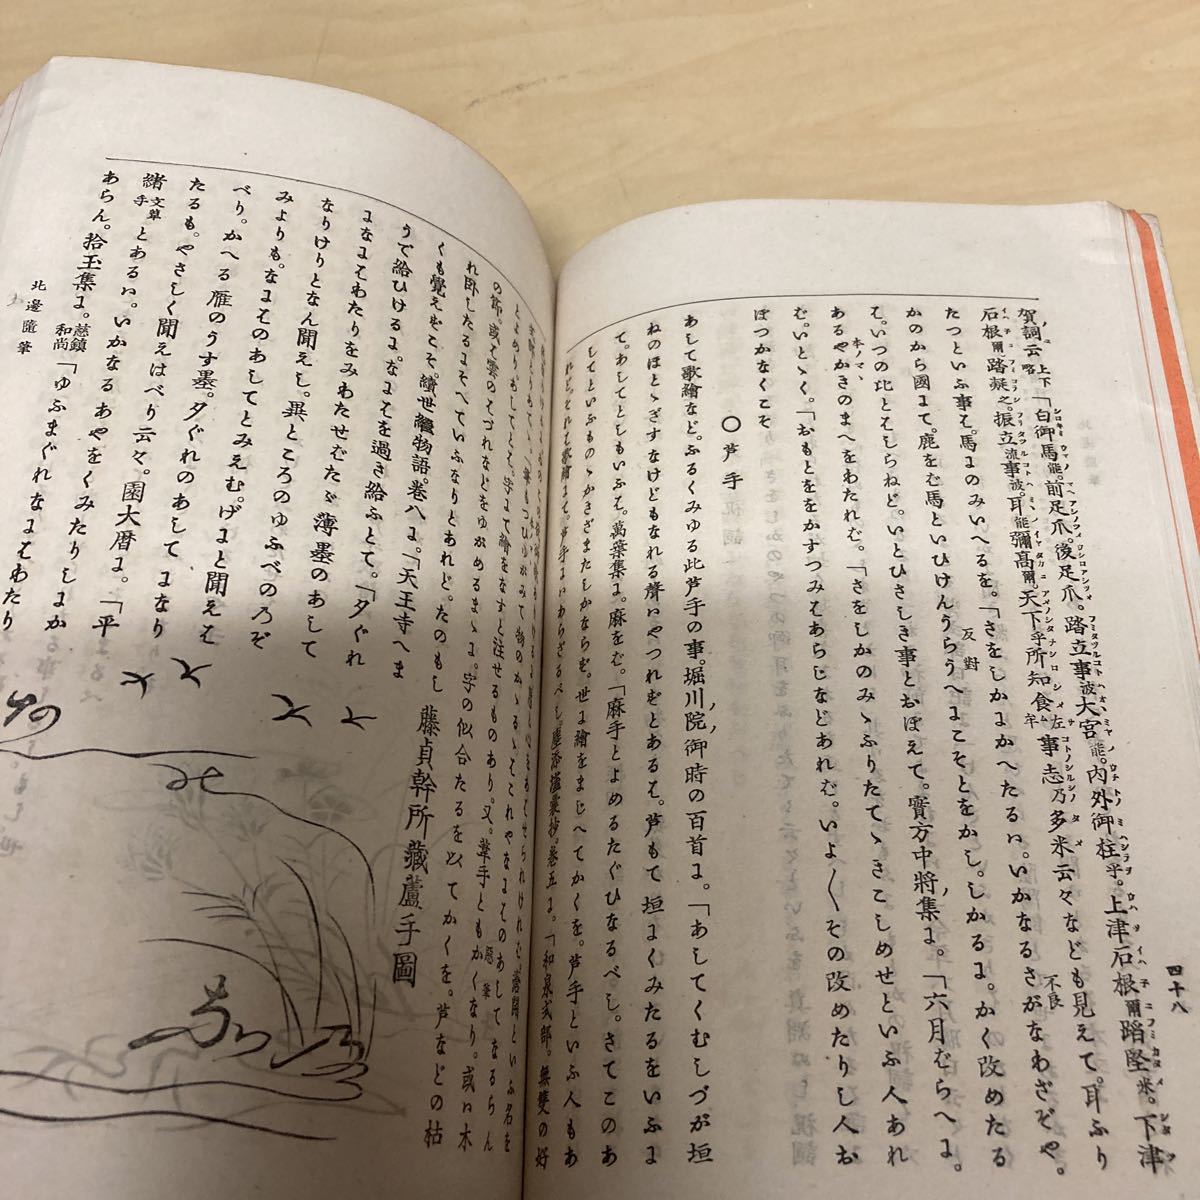 賀詞云上下略「白御馬能。前足爪。後足爪。踏立事波大宮能。内外御柱乎。上津石根爾踏堅米。下津
石根爾踏凝之。振立流事波。耳能彌高爾。天下乎所知食左牟事志乃多米云々なども見えて。耳ふり
たつといふ事そ。馬ꓕのみいへるを。「さをしかꓕかへたるハ。いかなるさがなわざぞや。
かのから國にて。鹿をむ馬といひけんうらうへにこそとをかし。しかるに。かく改めたる
そ。いつの比とそしらねど。いとひさしき事とおぼえて。實方中將集に。「六月むらへに。
あるやかきのまへをわたれむ。「さをしかのみゝふりたてゝきこしめせといふ人あれ
む。いとゝく。「おもとをかすつみそあらじなどあれむ。いよ〳〵その改めたりし人お
ぼつかなくこそ
〇芦手
あして歌繪など。ふるくみゆる此芦手の事。堀川院御時の百首に。「あしてくむしづが垣
ねのほとゝぎすなけどもなれる聲いやつれずとあるそ。芦もて垣にくみたるをいふに
て。あしてとしもいふそ。萬葉集に。麻をむ。「麻手とよめるたぐひなるべし。さてこのあ
してといふものゝかきざまたしかならず。世に繪をまじへてかくを。芦手といふ人もあ
れど。それそ歌繪にて。芦手にいあらざるべし。塵添壒囊抄。卷五に。「和泉式部。無雙の好
の節。或そ雲のそづれなどをゆがめるまゝに。字の似合たるを以てかくを。芦などの枯
れ臥したるにそへていふなりとあれど。たのもし
くも覺えずこそ。續世繼物語。卷八に。「天王寺へま
うで給ひけるに。なにそを過き給ふとて。「夕ぐれ
になにそわたりをみわたせむたゞ薄墨のあして
なりけりとなん聞えし。異ところのゆふべの乃ぞ
みよりも。なにそのあしてとみえむ。げにと聞えそ
べり。かへる雁のうす墨。夕ぐれのあしてになり
たるも。やさしく聞えはべり云々。園大暦に。「平
緒文草手とあるハ。いかなるあやをくみたりしにか
あらん。拾玉集に。慈鎮和尚「ゆふまぐれなにそわたり
藤貞幹所藏蘆手圖
北邊隨筆
四十八